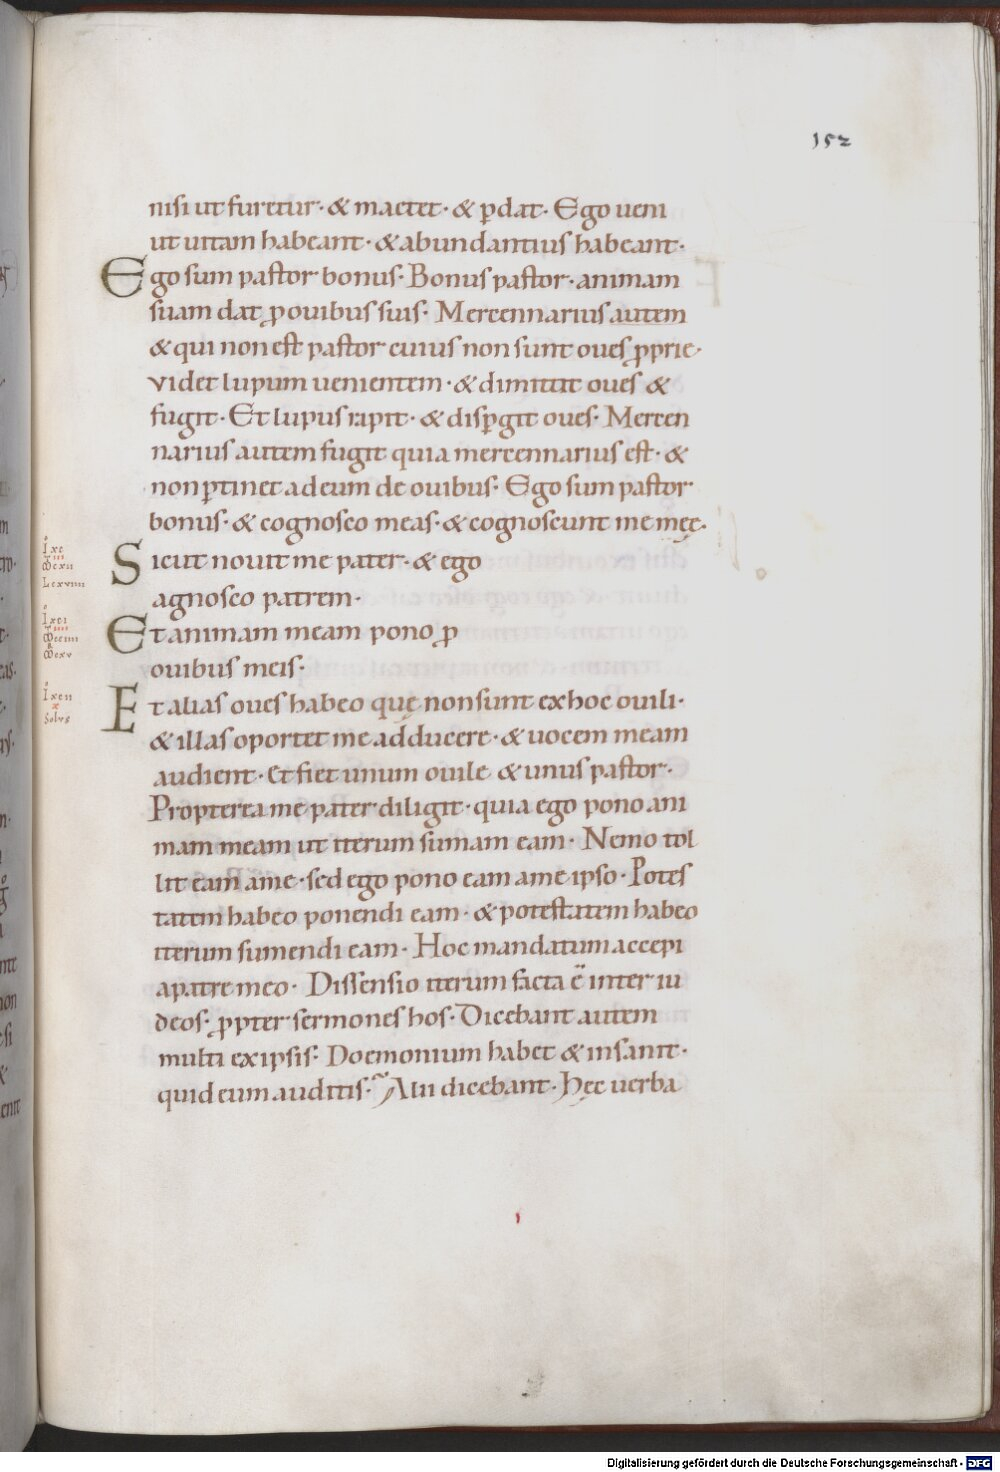 152
nisi ut furetur · & mactet · & ꝑdat · Ego ueni
ut uitam habeant · & abundantius habeant ·
Ego sum pastor bonus · Bonus pastor · animam
suam dat ꝓ ouibus suis · Mercennarius autem
& qui non est pastor cuius non sunt oues ꝓprie ·
videt lupum uenientem · & dimittit oues &
fugit · Et lupus rapit · & disꝑgit oues · Mercen
narius autem fugit quia mercennarius est · &
non ꝑtinet ad eum de ouibus · Ego sum pastor
bonus · & cognosco meas · & cognoscunt me meę ·
Sicut nouit me pater · & ego
agnosco patrem ·
Et animam meam pono ꝓ
ouibus meis ·
Et alias oues habeo quę non sunt ex hoc ouili ·
& illas oportet me adducere · & uocem meam
audient · et fiet unum ouile & unus pastor ·
Propterea me pater diligit · quia ego pono ani
mam meam ut iterum sumam eam · Nemo tol
lit eam a me · sed ego pono eam a me ipso · Potes
tatem habeo ponendi eam · & potestatem habeo
iterum sumendi eam · Hoc mandatum accepi
a patre meo · Dissensio iterum facta ē inter iu
deos · ꝓpter sermones hos · Dicebant autem
multi ex ipsis · Doemonium habet & insanit ·
quid eum auditis · Alii dicebant · Hęc uerba
Solus
Digitalisierung gefördert durch die Deutsche Forschungsgemeinschaft - DFG